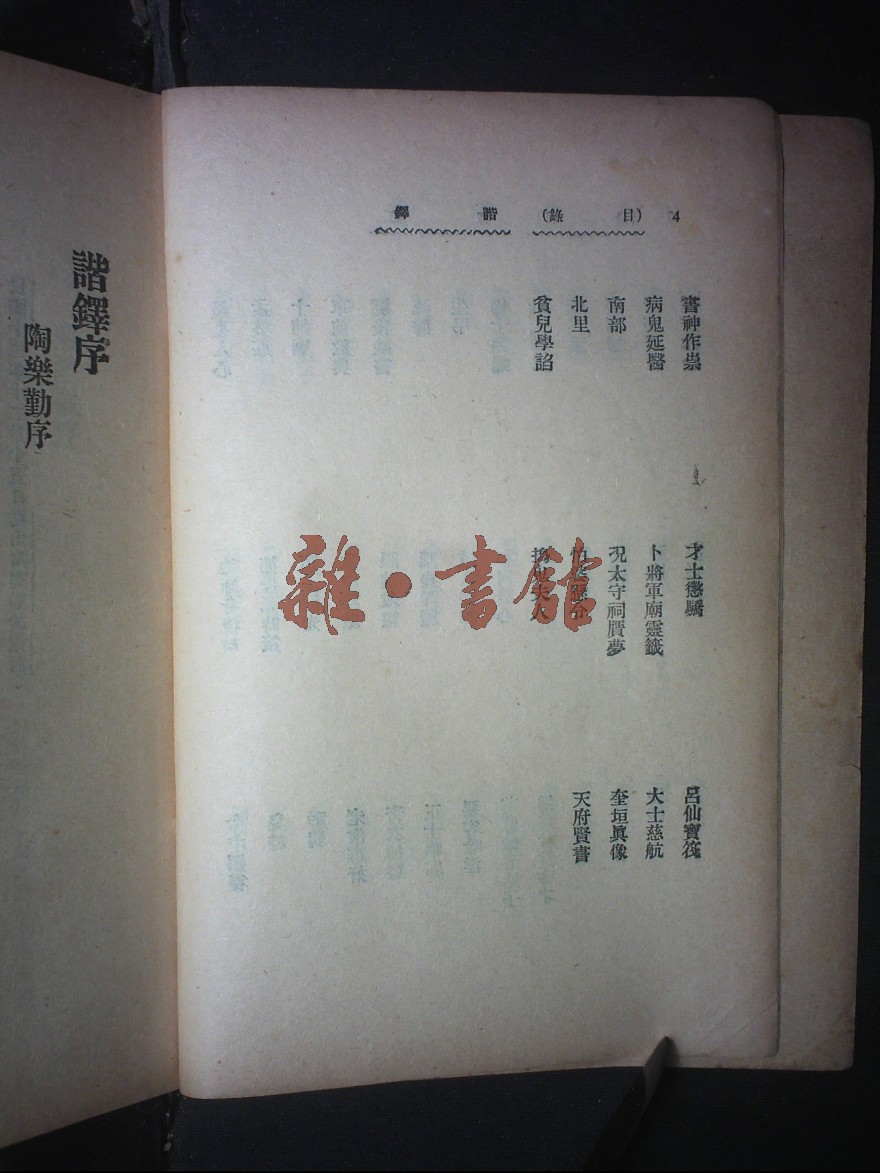 4 (目錄) 諧鐸
書神作祟
才士懲驕
呂仙寶筏
病鬼延醫
卜將軍廟靈籤
大士慈航
南部
況太守祠贗夢
奎垣眞像
北里
天府賢書
貧兒學諂
搗鬼夫人
諧鐸序
陶樂勤序
雜·書館